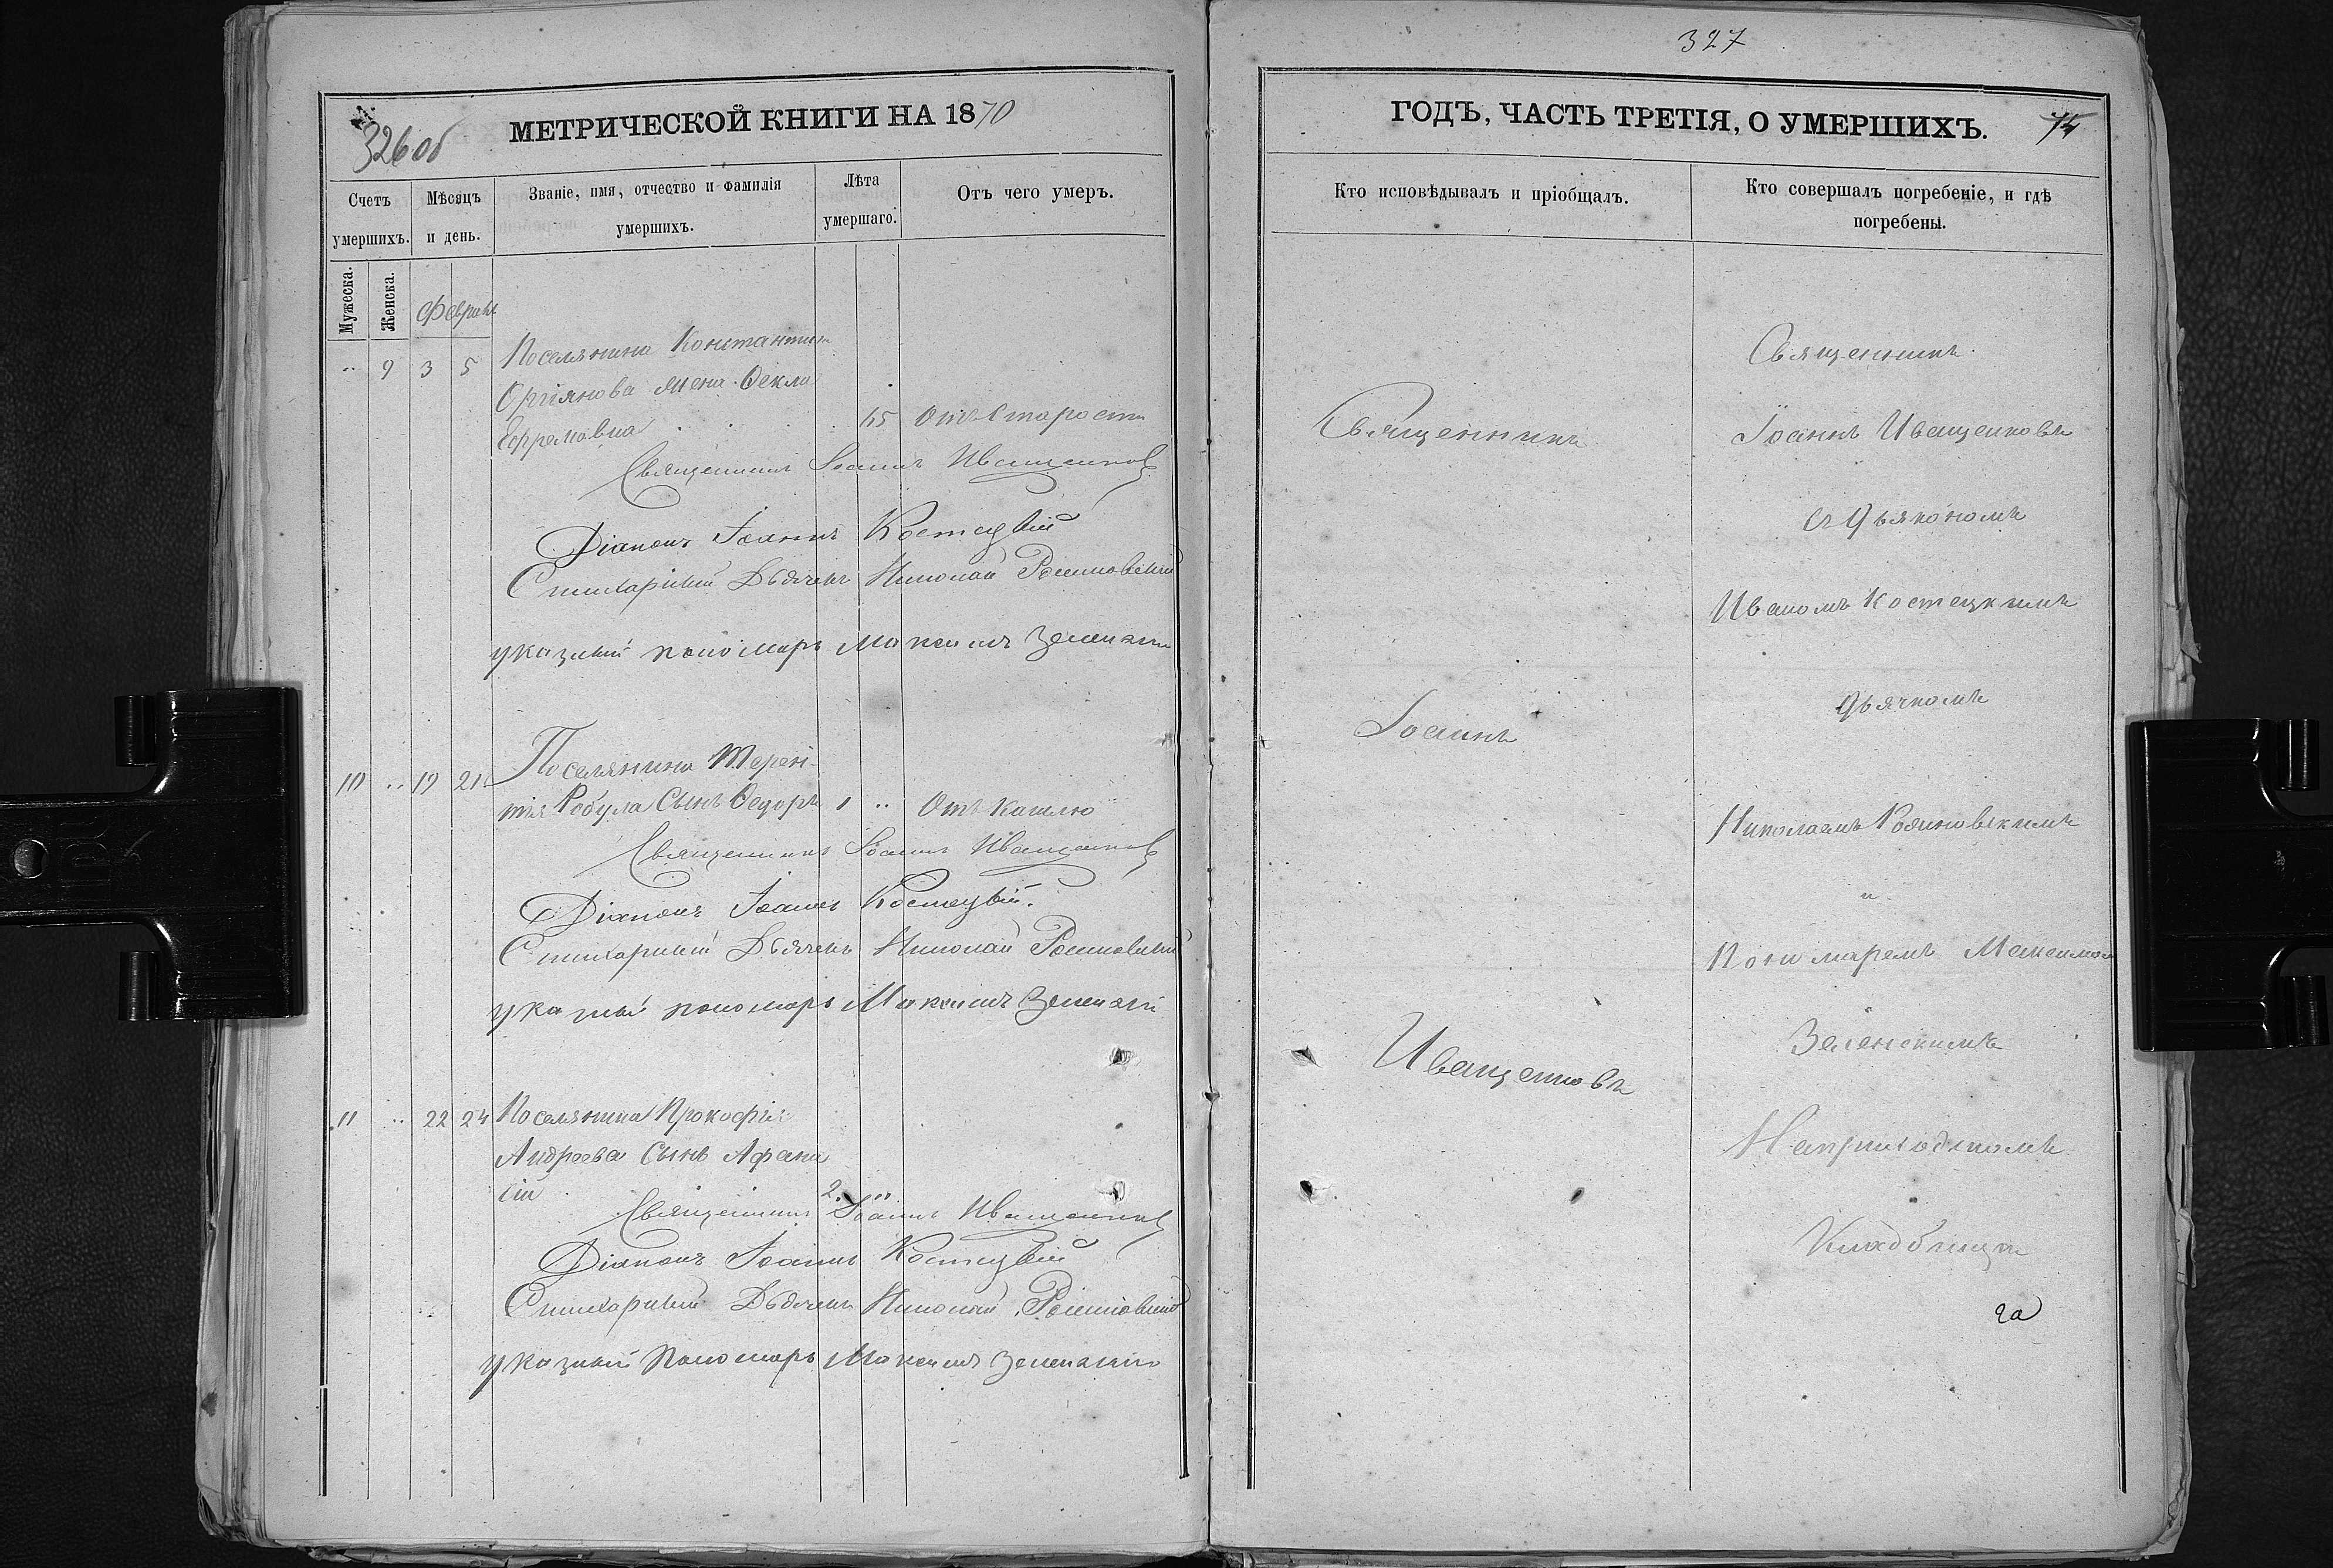 326 об
МЕТРИЧЕСКОЙ КНИГИ НА 1870
Счетъ умершихъ.
Мѣсяцъ и день.
Званіе, имя, отчество и фамилія умершихъ.
Лѣта умершаго.
Отъ чего умеръ.
Мужеска.
Женска.
Февраль
" 9 3 5 Поселянина Константина
жена Фекла
Ефремовна 65 отъ Старости
Священникъ Іоаннъ Иващенковъ
Діаконъ Іоаннъ Костецкій
Стихарный Дьячекъ Николай
указный пономарь Максимъ Зеленскій
10 " 19 21 Поселянина Терен-
тія Робула Сынъ Ѳедоръ 1 " Отъ Кашлю
Священникъ Іоаннъ Иващенковъ
Діаконъ Іоаннъ Костецкій.
Стихарный Дьячекъ Николай
указный пономарь Максимъ Зеленскій
11 " 22 24 Поселянина Прокофія
Андреева Сынъ Афана
сій 2. "
Священникъ Іоаннъ Иващенковъ
Діаконъ Іоаннъ Костецкій
Стихарный Дьячекъ Николай
указный пономарь Максимъ Зеленскій
327
ГОДЪ, ЧАСТЬ ТРЕТІЯ, О УМЕРШИХЪ.
Кто исповѣдывалъ и пріобщалъ.
Кто совершалъ погребеніе, и гдѣ погребены.
Священникъ
Іоаннъ
Иващенковъ
Священникъ
Іоаннъ Иващенковъ
съ Дьякономъ
Иваномъ Костецкимъ
Дьячкомъ
Николаемъ
и
Пономаремъ Максимом
Зеленскимъ
На приходскомъ
Кладбищи